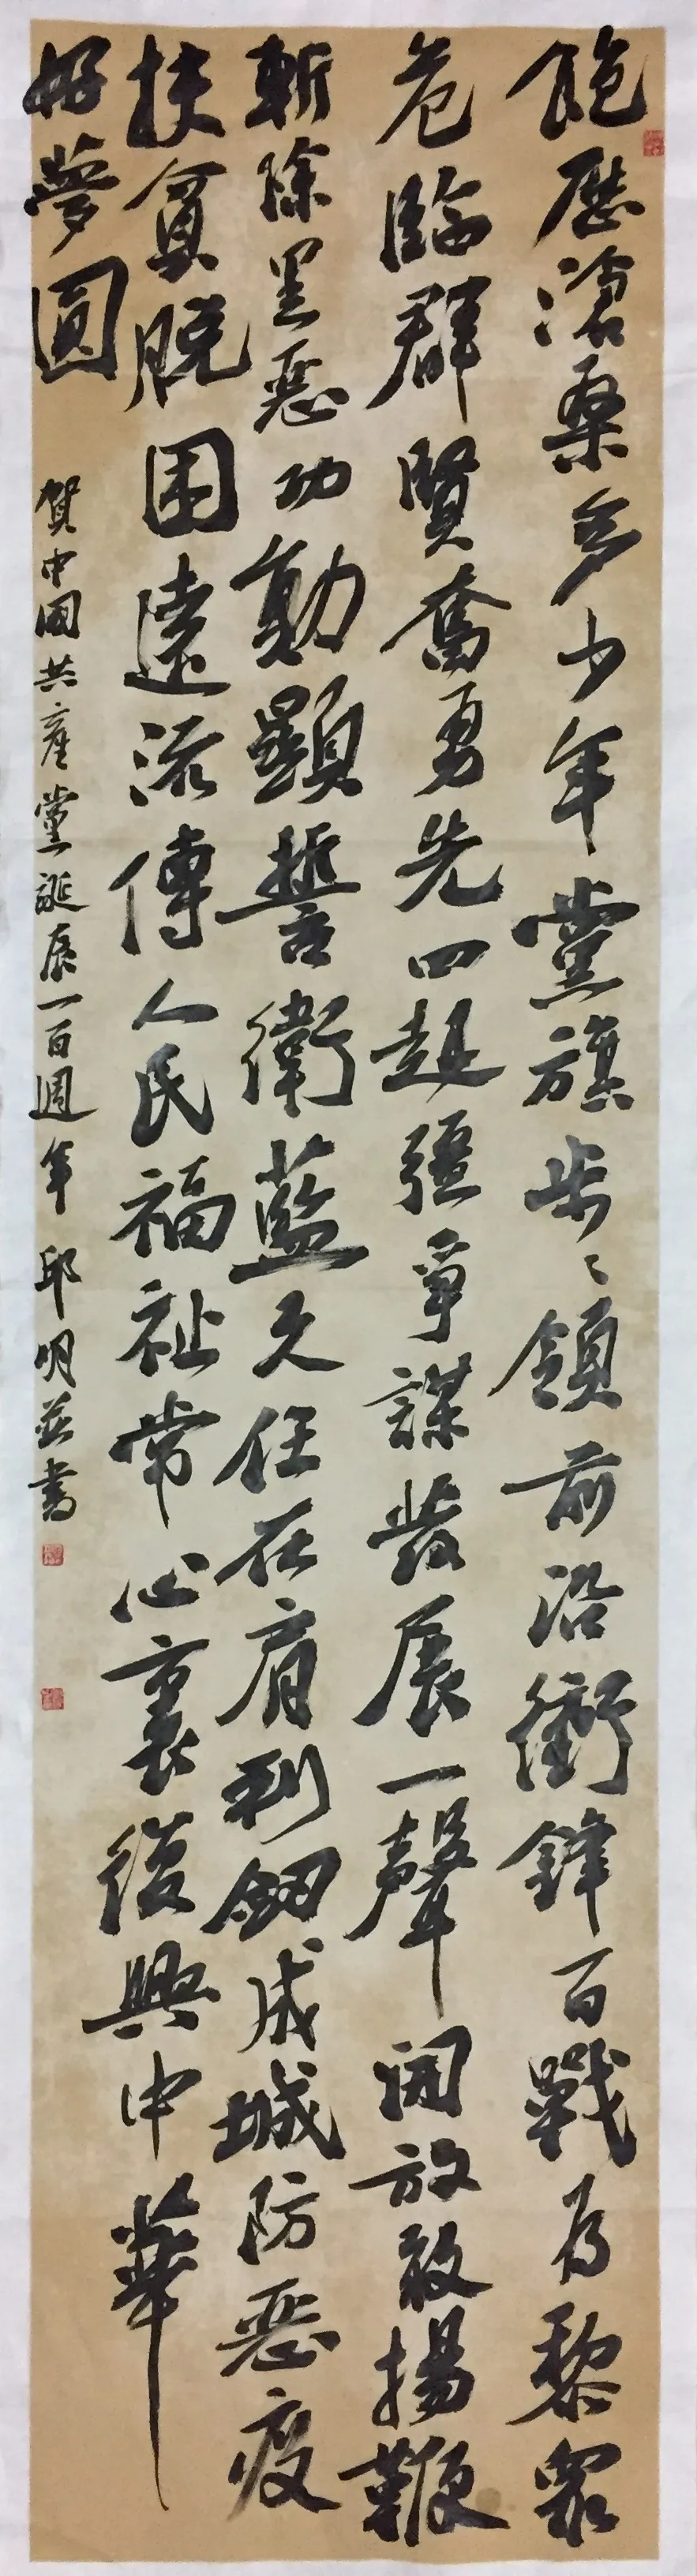 飽歷滄桑多少年黨旗步〻領前沿衝鋒百戰為黎衆
危臨群賢奮勇先四起疆爭謀發展一聲開放敢揚鞭
斬除黑惡功勛顯誓衛藍天任在肩利劍成城防惡疫
扶貧脱困遠流傳人民福祉常心裏復興中華
好夢圓
賀中國共產黨誕辰一百週年邱明並書